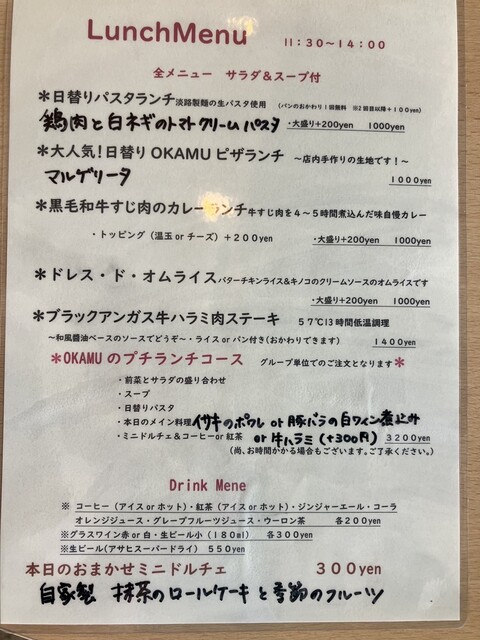 LunchMenu 11:30~14:00
全メニュー サラダ&スープ付
*日替りパスタランチ 淡路製麺の生パスタ使用 (パンのおかわり1回無料 ※2回目以降+100yen)
鶏肉と白ネギのトマトクリームパスタ ・大盛り+200yen 1000yen
*大人気!日替りOKAMUピザランチ ~店内手作りの生地です!~
マルゲリータ 1000yen
*黒毛和牛すじ肉のカレーランチ 牛すじ肉を4~5時間煮込んだ味自慢カレー
・トッピング(温玉orチーズ)+200yen ・大盛り+200yen 1000yen
*ドレス・ド・オムライス バターチキンライス&キノコのクリームソースのオムライスです
・大盛り+200yen 1000yen
*ブラックアンガス牛ハラミ肉ステーキ 57℃13時間低温調理
~和風醤油ベースのソースでどうぞ~・ライスorパン付き(おかわりできます) 1400yen
*OKAMUのプチランチコース グループ単位でのご注文となります*
・前菜とサラダの盛り合わせ
・スープ
・日替りパスタ
・本日のメイン料理 イサキのポワレ or 豚バラの白ワイン煮込み
・ミニドルチェ&コーヒーor紅茶 or 牛ハラミ(+300円) 3200yen
(尚、お時間かかる場合もございます。ご了承ください。)
Drink Mene
※ コーヒー(アイスorホット)・紅茶(アイスorホット)・ジンジャーエール・コーラ
オレンジジュース・グレープフルーツジュース・ウーロン茶 各200yen
※グラスワイン赤or白・生ビール小(180ml) 各300yen
※生ビール(アサヒスーパードライ) 550yen
本日のおまかせミニドルチェ 300yen
自家製 抹茶のロールケーキと季節のフルーツ